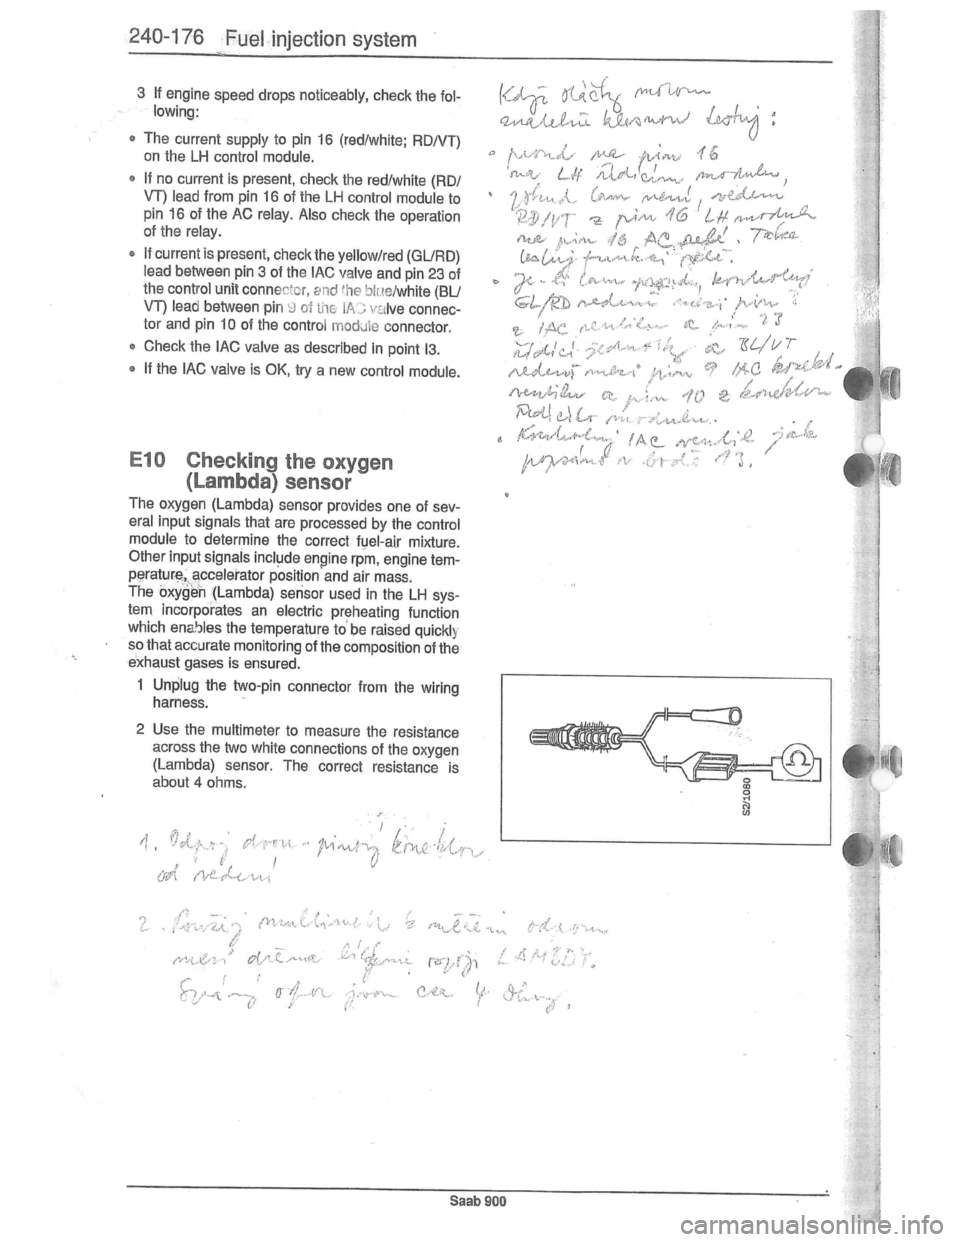 240-176 Fuel injection system
3 If engine speed drops noticeably, check the fol-
lowing:
The current supply to pin 16 (red/white; RD/VT)
on the LH control module.
If no current is present, check the red/white (RD/
VT) lead from pin 16 of the LH control module to
pin 16 of the AC relay. Also check the operation
of the relay.
If current is present, check the yellow/red (GL/RD)
lead between pin 3 of the IAC valve and pin 23 of
the control unit connector, and the blue/white (BL/
VT) lead between pin 9 of the IAC valve connec-
tor and pin 10 of the control module connector.
Check the IAC valve as described in point 13.
If the IAC valve is OK, try a new control module.
E10 Checking the oxygen
(Lambda) sensor
The oxygen (Lambda) sensor provides one of sev-
eral input signals that are processed by the control
module to determine the correct fuel-air mixture.
Other input signals include engine rpm, engine tem-
perature, accelerator position and air mass.
The oxygen (Lambda) sensor used in the LH sys-
tem incorporates an electric preheating function
which enables the temperature to be raised quickly
so that accurate monitoring of the composition of the
exhaust gases is ensured.
1 Unplug the two-pin connector from the wiring
harness.
2 Use the multimeter to measure the resistance
across the two white connections of the oxygen
(Lambda) sensor. The correct resistance is
about 4 ohms.
Když otáčky
:
na pin 16
LH
není, vedení
RD/VT z pin 16 LH
na pin 16 AC relé.
relé.
Je-li
GL/RD vedení mezi pin
z IAC a pin 23
a BL/VT
mezi pin 9 IAC
a pin 10 z
IAC ventil jak
13.
Ω
S2/1080
1. Odpoj dvou-pinový konektor
od vedení
2.
LAMBDY.
odpor jsou cca 4 Ohmy.
Saab 900
carmanualsonline.info